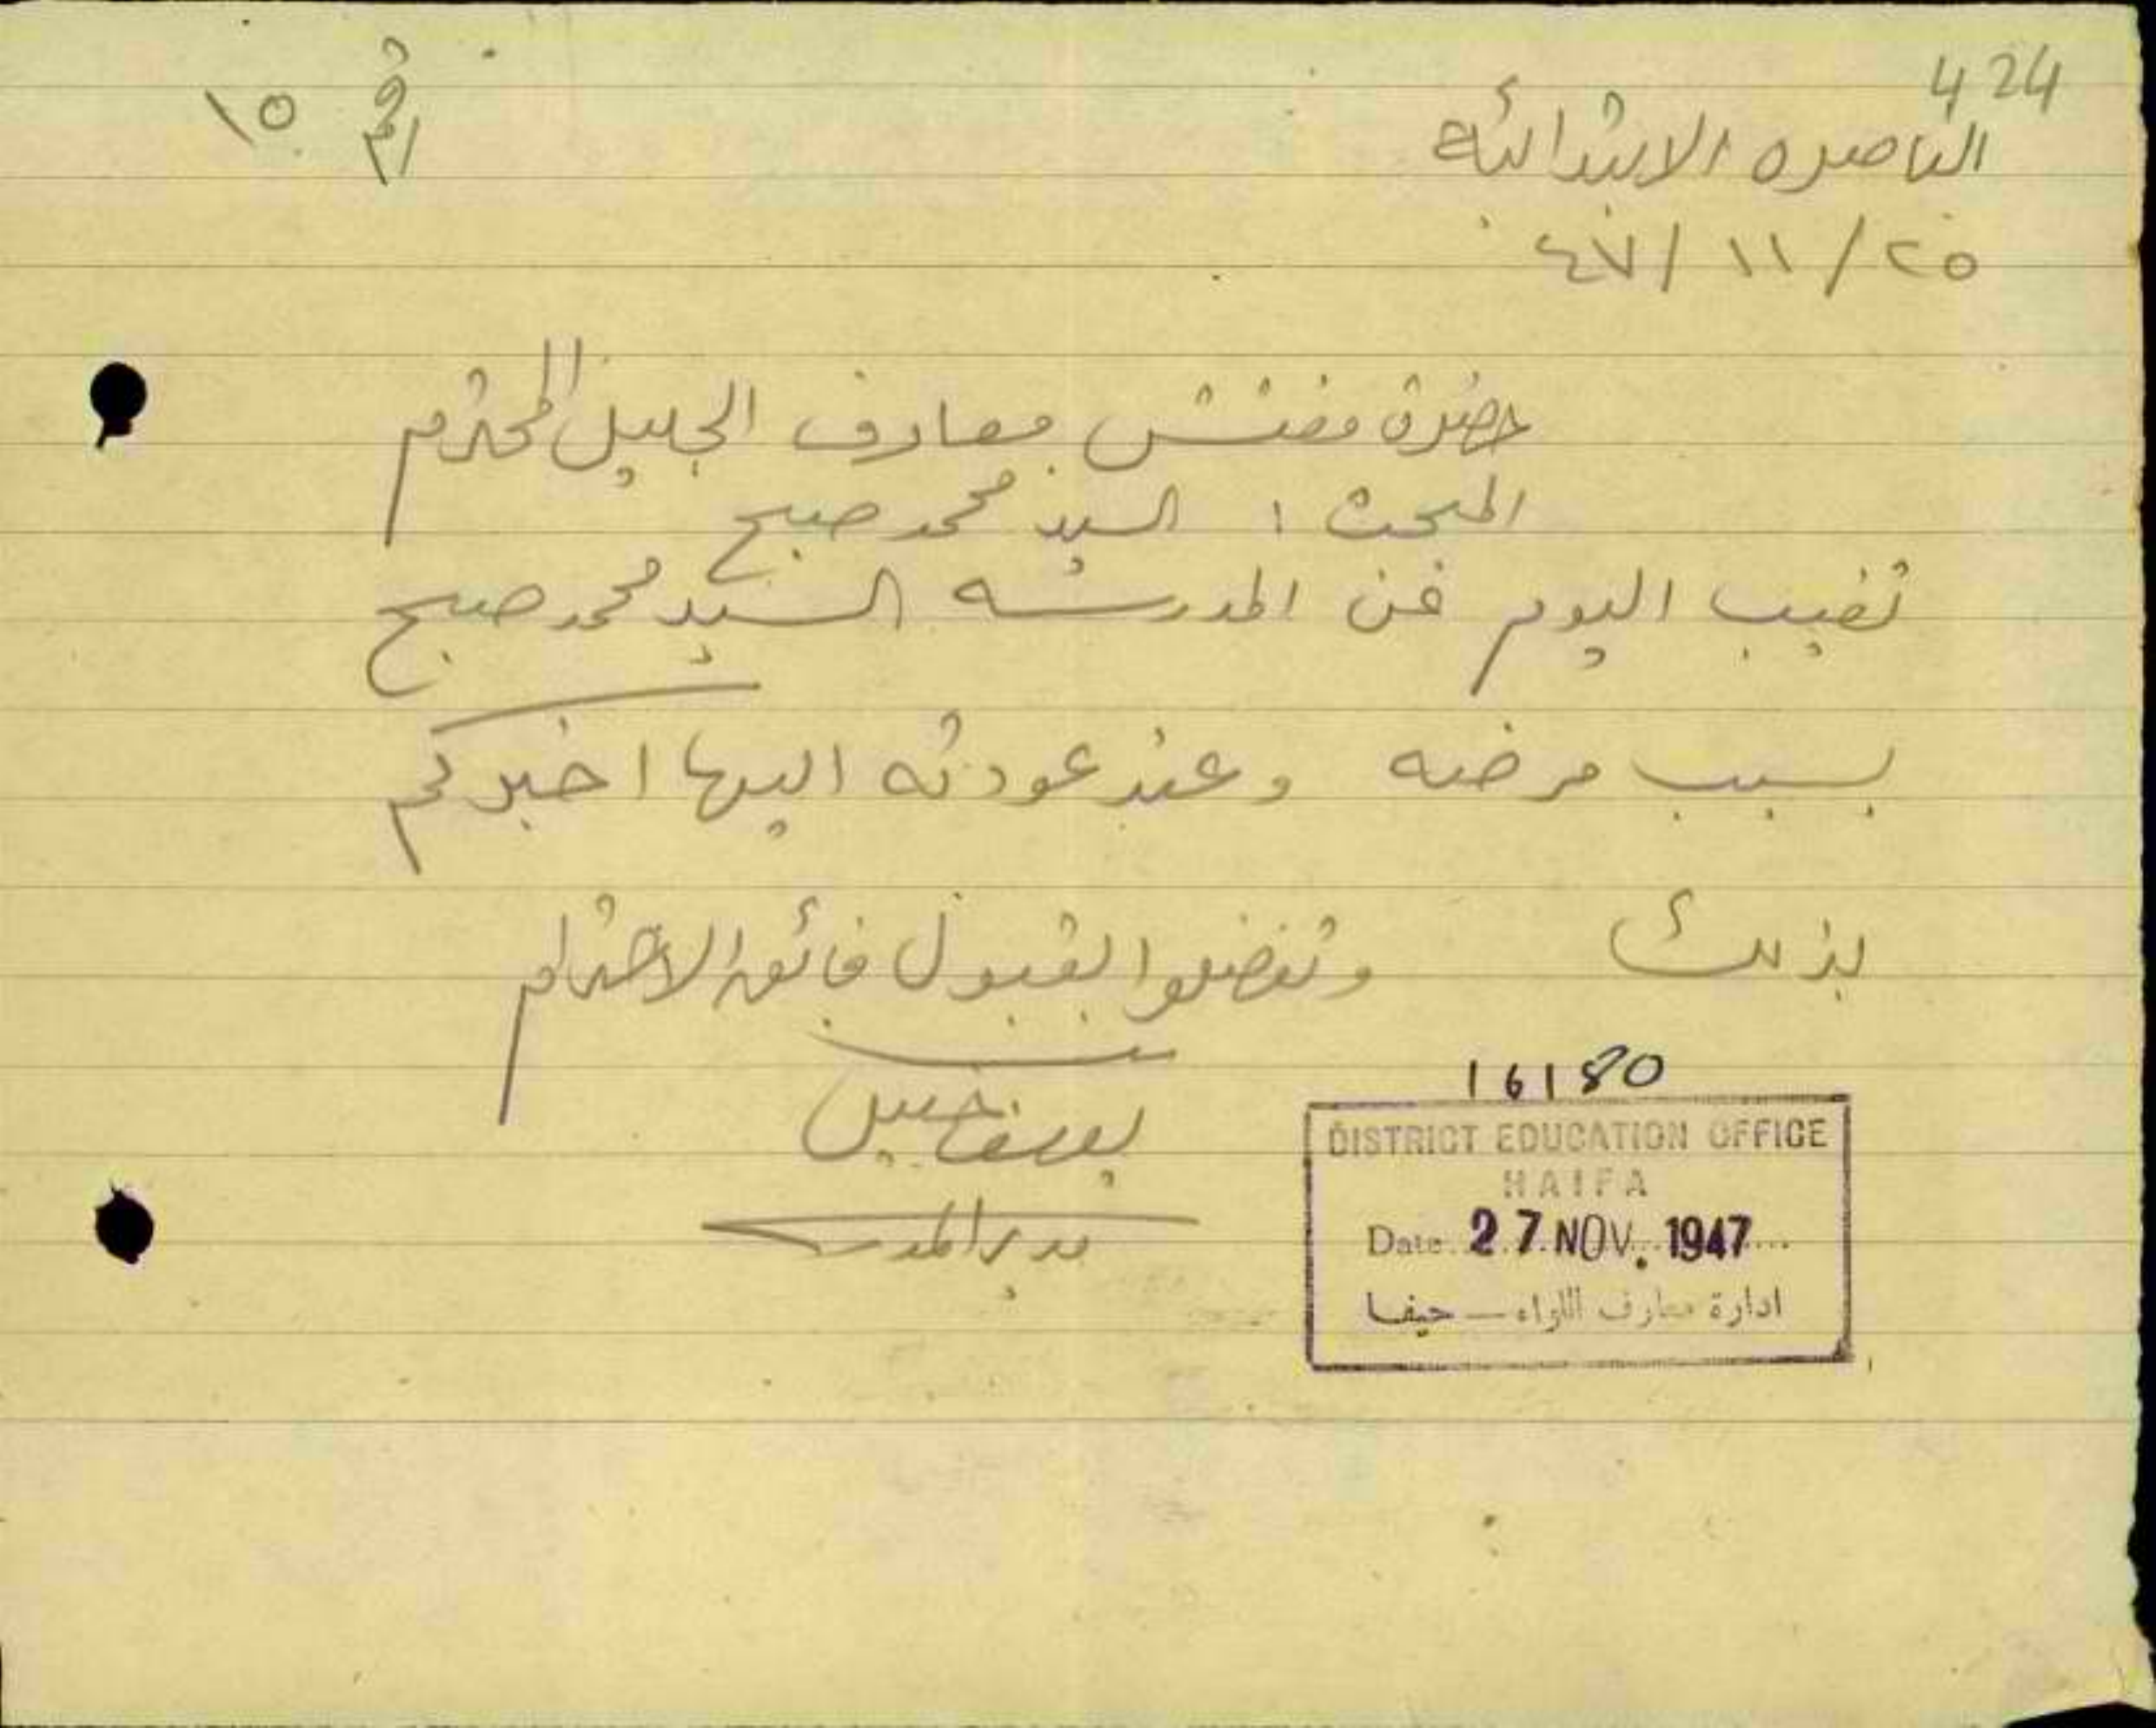 424
الناصره الابتدائية
رقم ١٥
٢٥/ ١١ /٤٧
حضرة مفتش معارف الجليل المحترم
المبحث : السيد محمد صبح
تغيب اليوم عن المدرسه السيد محمد صبح
بسبب مرضه وعند عودته اليها اخبركم
بذلك وتفضلوا بقبول فائق الاحترام
يوسف خليل
مدير المدرسة
16180
DISTRICT EDUCATION OFFICE
HAIFA
Date 27 NOV. 1947
ادارة معارف اللواء — حيفا